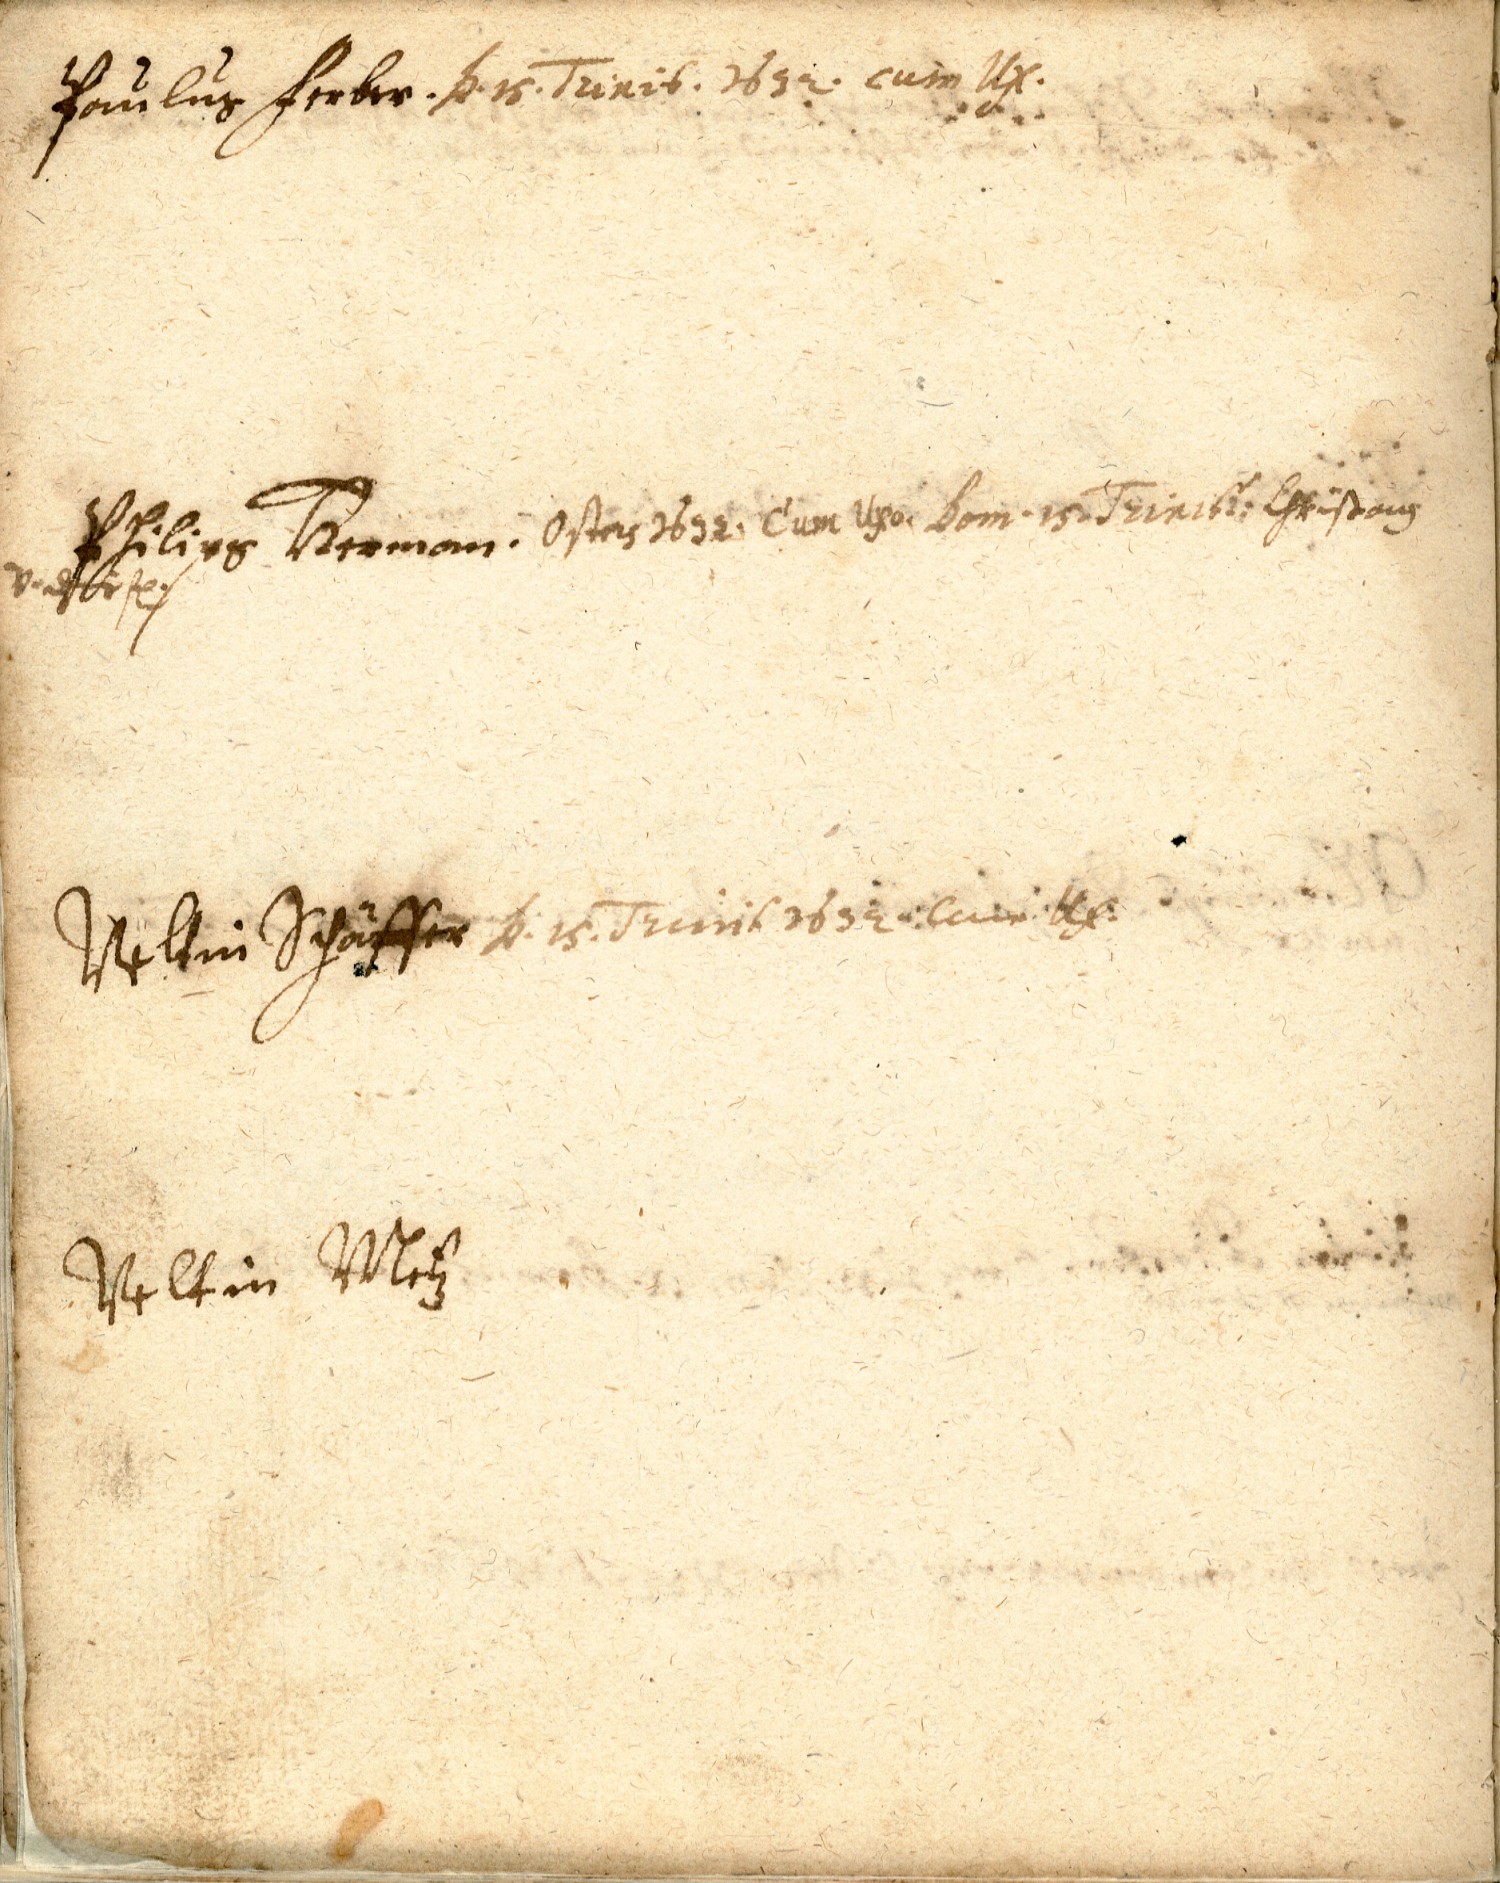 Paulus Ferber. D. 15. Trinit. 1632. cum Ux.
Philips Herman. Osters 1632. Cum Uxo. Dom. 15. Trinit: Christang
Veltin Schäffer D. 15. Trinit 1632. cum Ux.
Veltin Metz